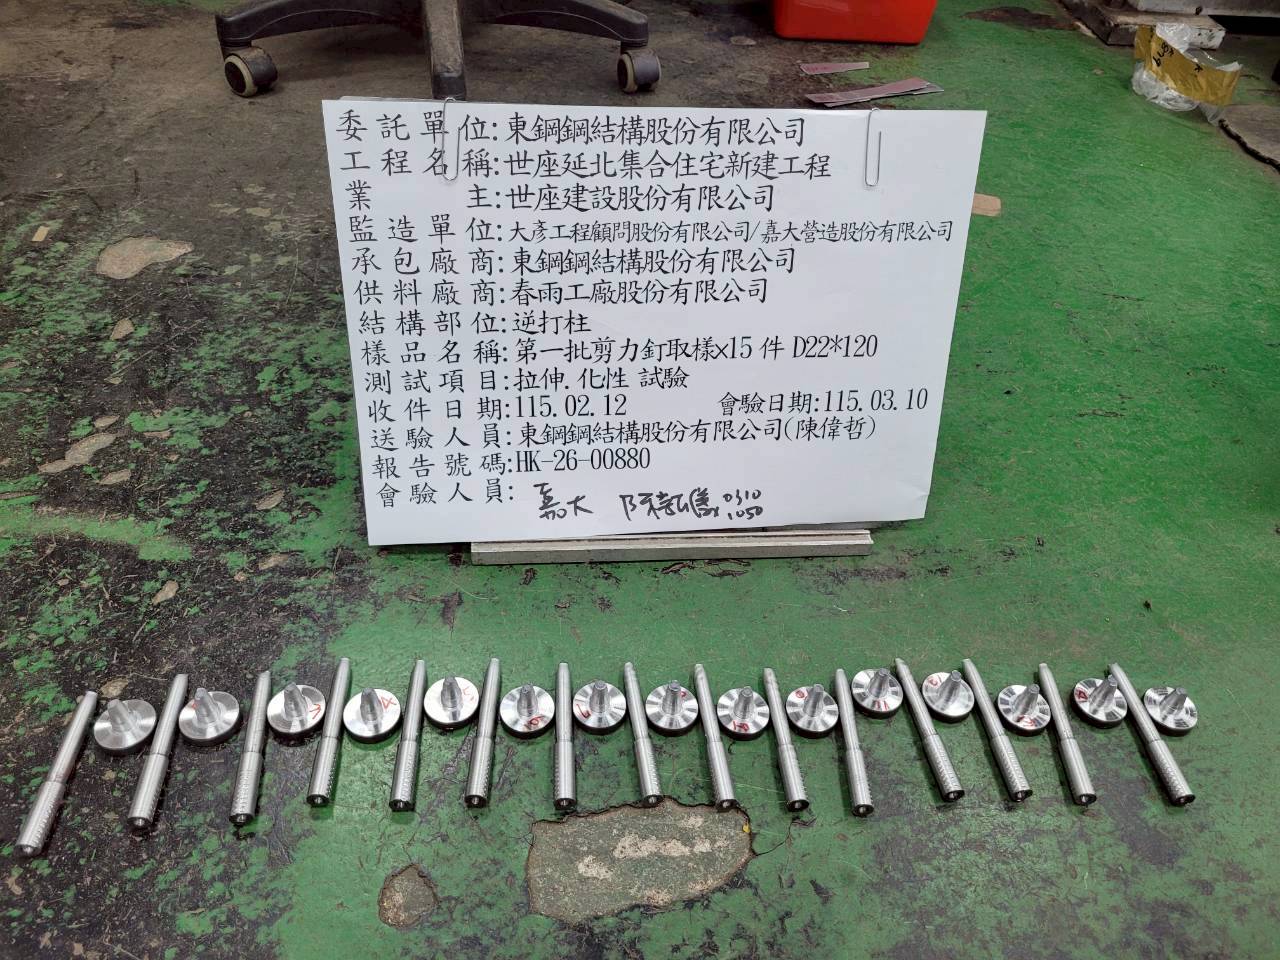 委託單位:東鋼鋼結構股份有限公司
工程名稱:世座延北集合住宅新建工程
業主:世座建設股份有限公司
監造單位:大彥工程顧問股份有限公司/嘉大營造股份有限公司
承包廠商:東鋼鋼結構股份有限公司
供料廠商:春雨工廠股份有限公司
結構部位:逆打柱
樣品名稱:第一批剪力釘取樣×15件 D22*120
測試項目:拉伸.化性 試驗
收件日期:115.02.12 會驗日期:115.03.10
送驗人員:東鋼鋼結構股份有限公司(陳偉哲)
報告號碼:HK-26-00880
會驗人員: 嘉大 0310
1050